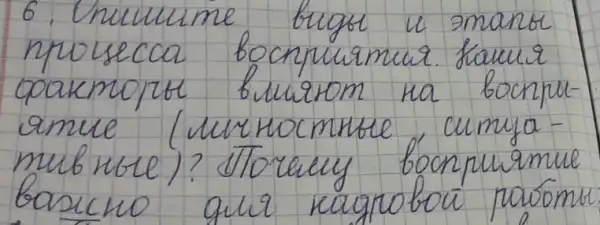 6. Опишите виды и этапы
процесса восприятия. Какия
факторы влияют на воспри-
ятие (личностные, ситуа-
тивные)? Почему восприятие
важно для кадровой работы